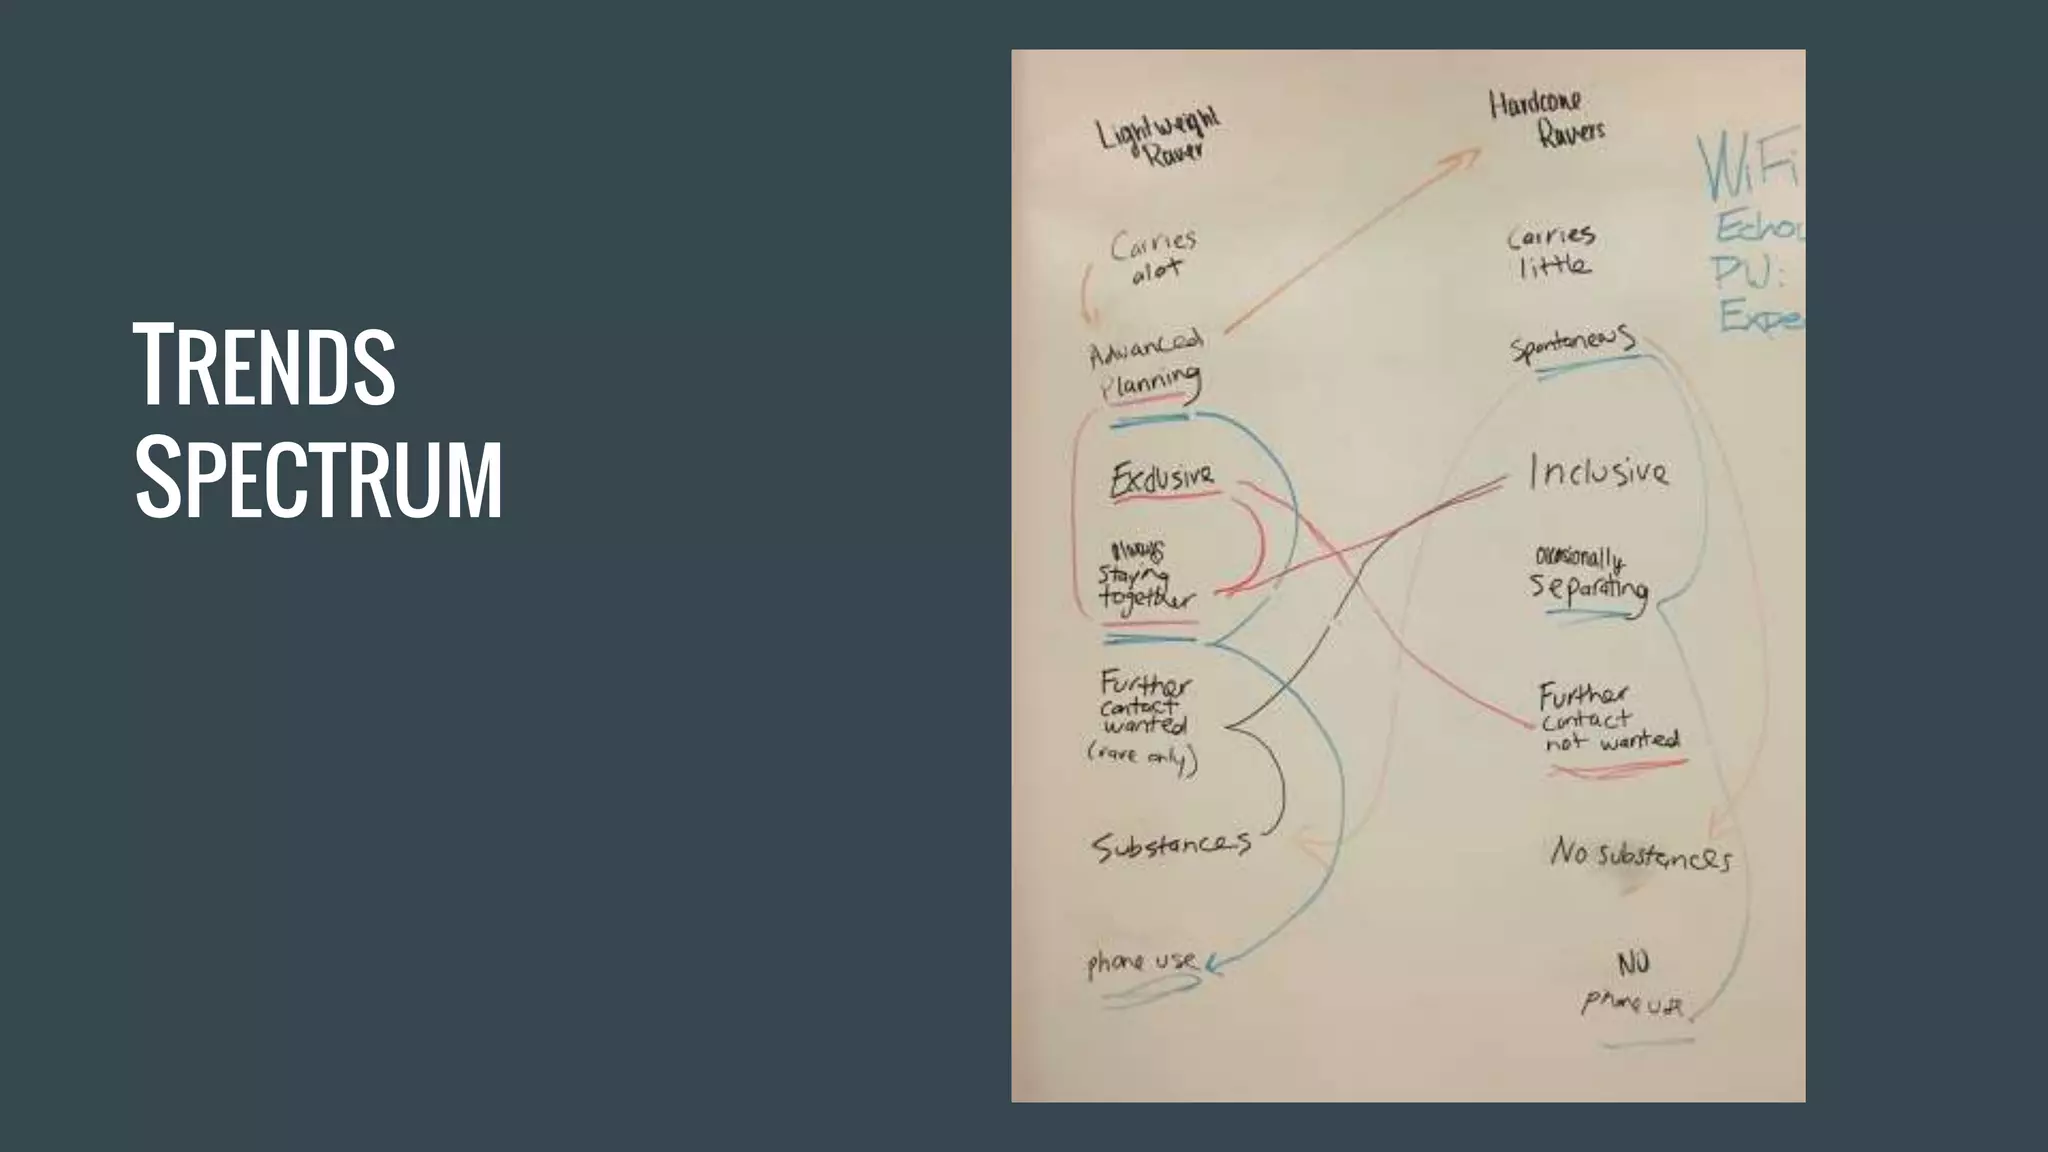 TRENDS
SPECTRUM
Lightweight
Raver
Hardcore
Ravers
WiFi
Echo
PW:
Expe
Carries
alot
Carries
little
Advanced
Planning
Spontaneous
Exclusive
Inclusive
always
staying
together
occasionally
separating
Further
contact
wanted
(rave only)
Further
contact
not wanted
Substances
No substances
phone use
NO
phone use